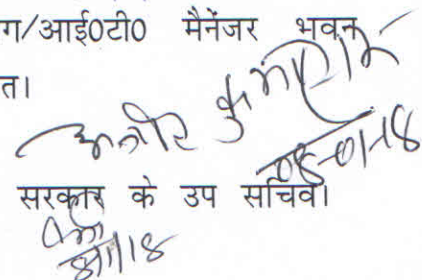 ग/आई०टी० मैनेंजर भवन
त।
कुमार
08-01-18
सरकार के उप सचिव।
8/1/18